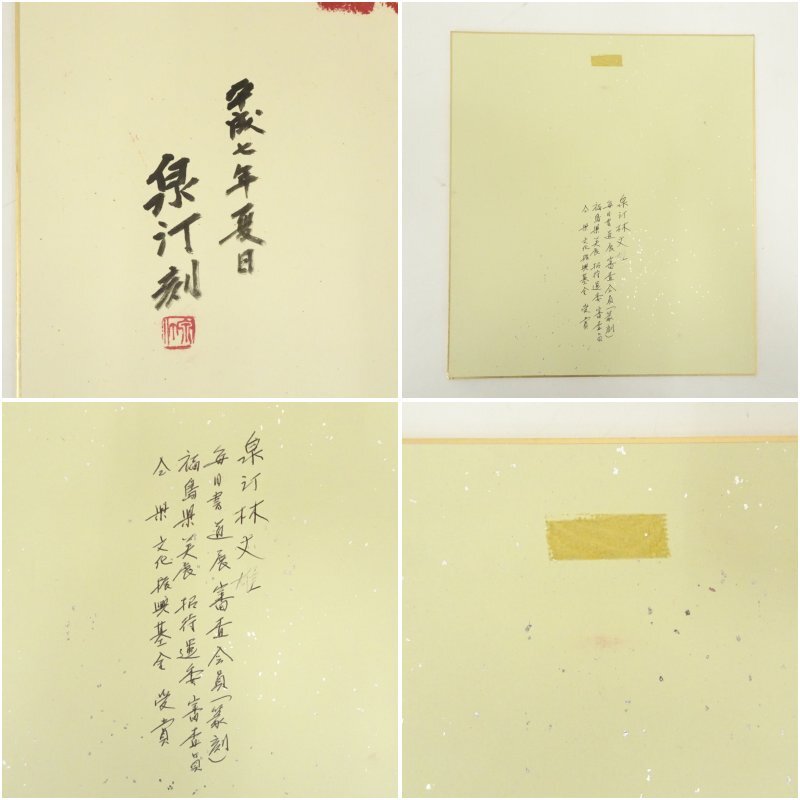 平成七年夏日
泉汀刻
泉汀林文雄
毎日書道展審査会員(篆刻)
福島県美展招待選委審査員
仝県文化振興基金受賞
泉汀林文雄
毎日書道展審査会員(篆刻)
福島県美展招待選委審査員
仝県文化振興基金受賞